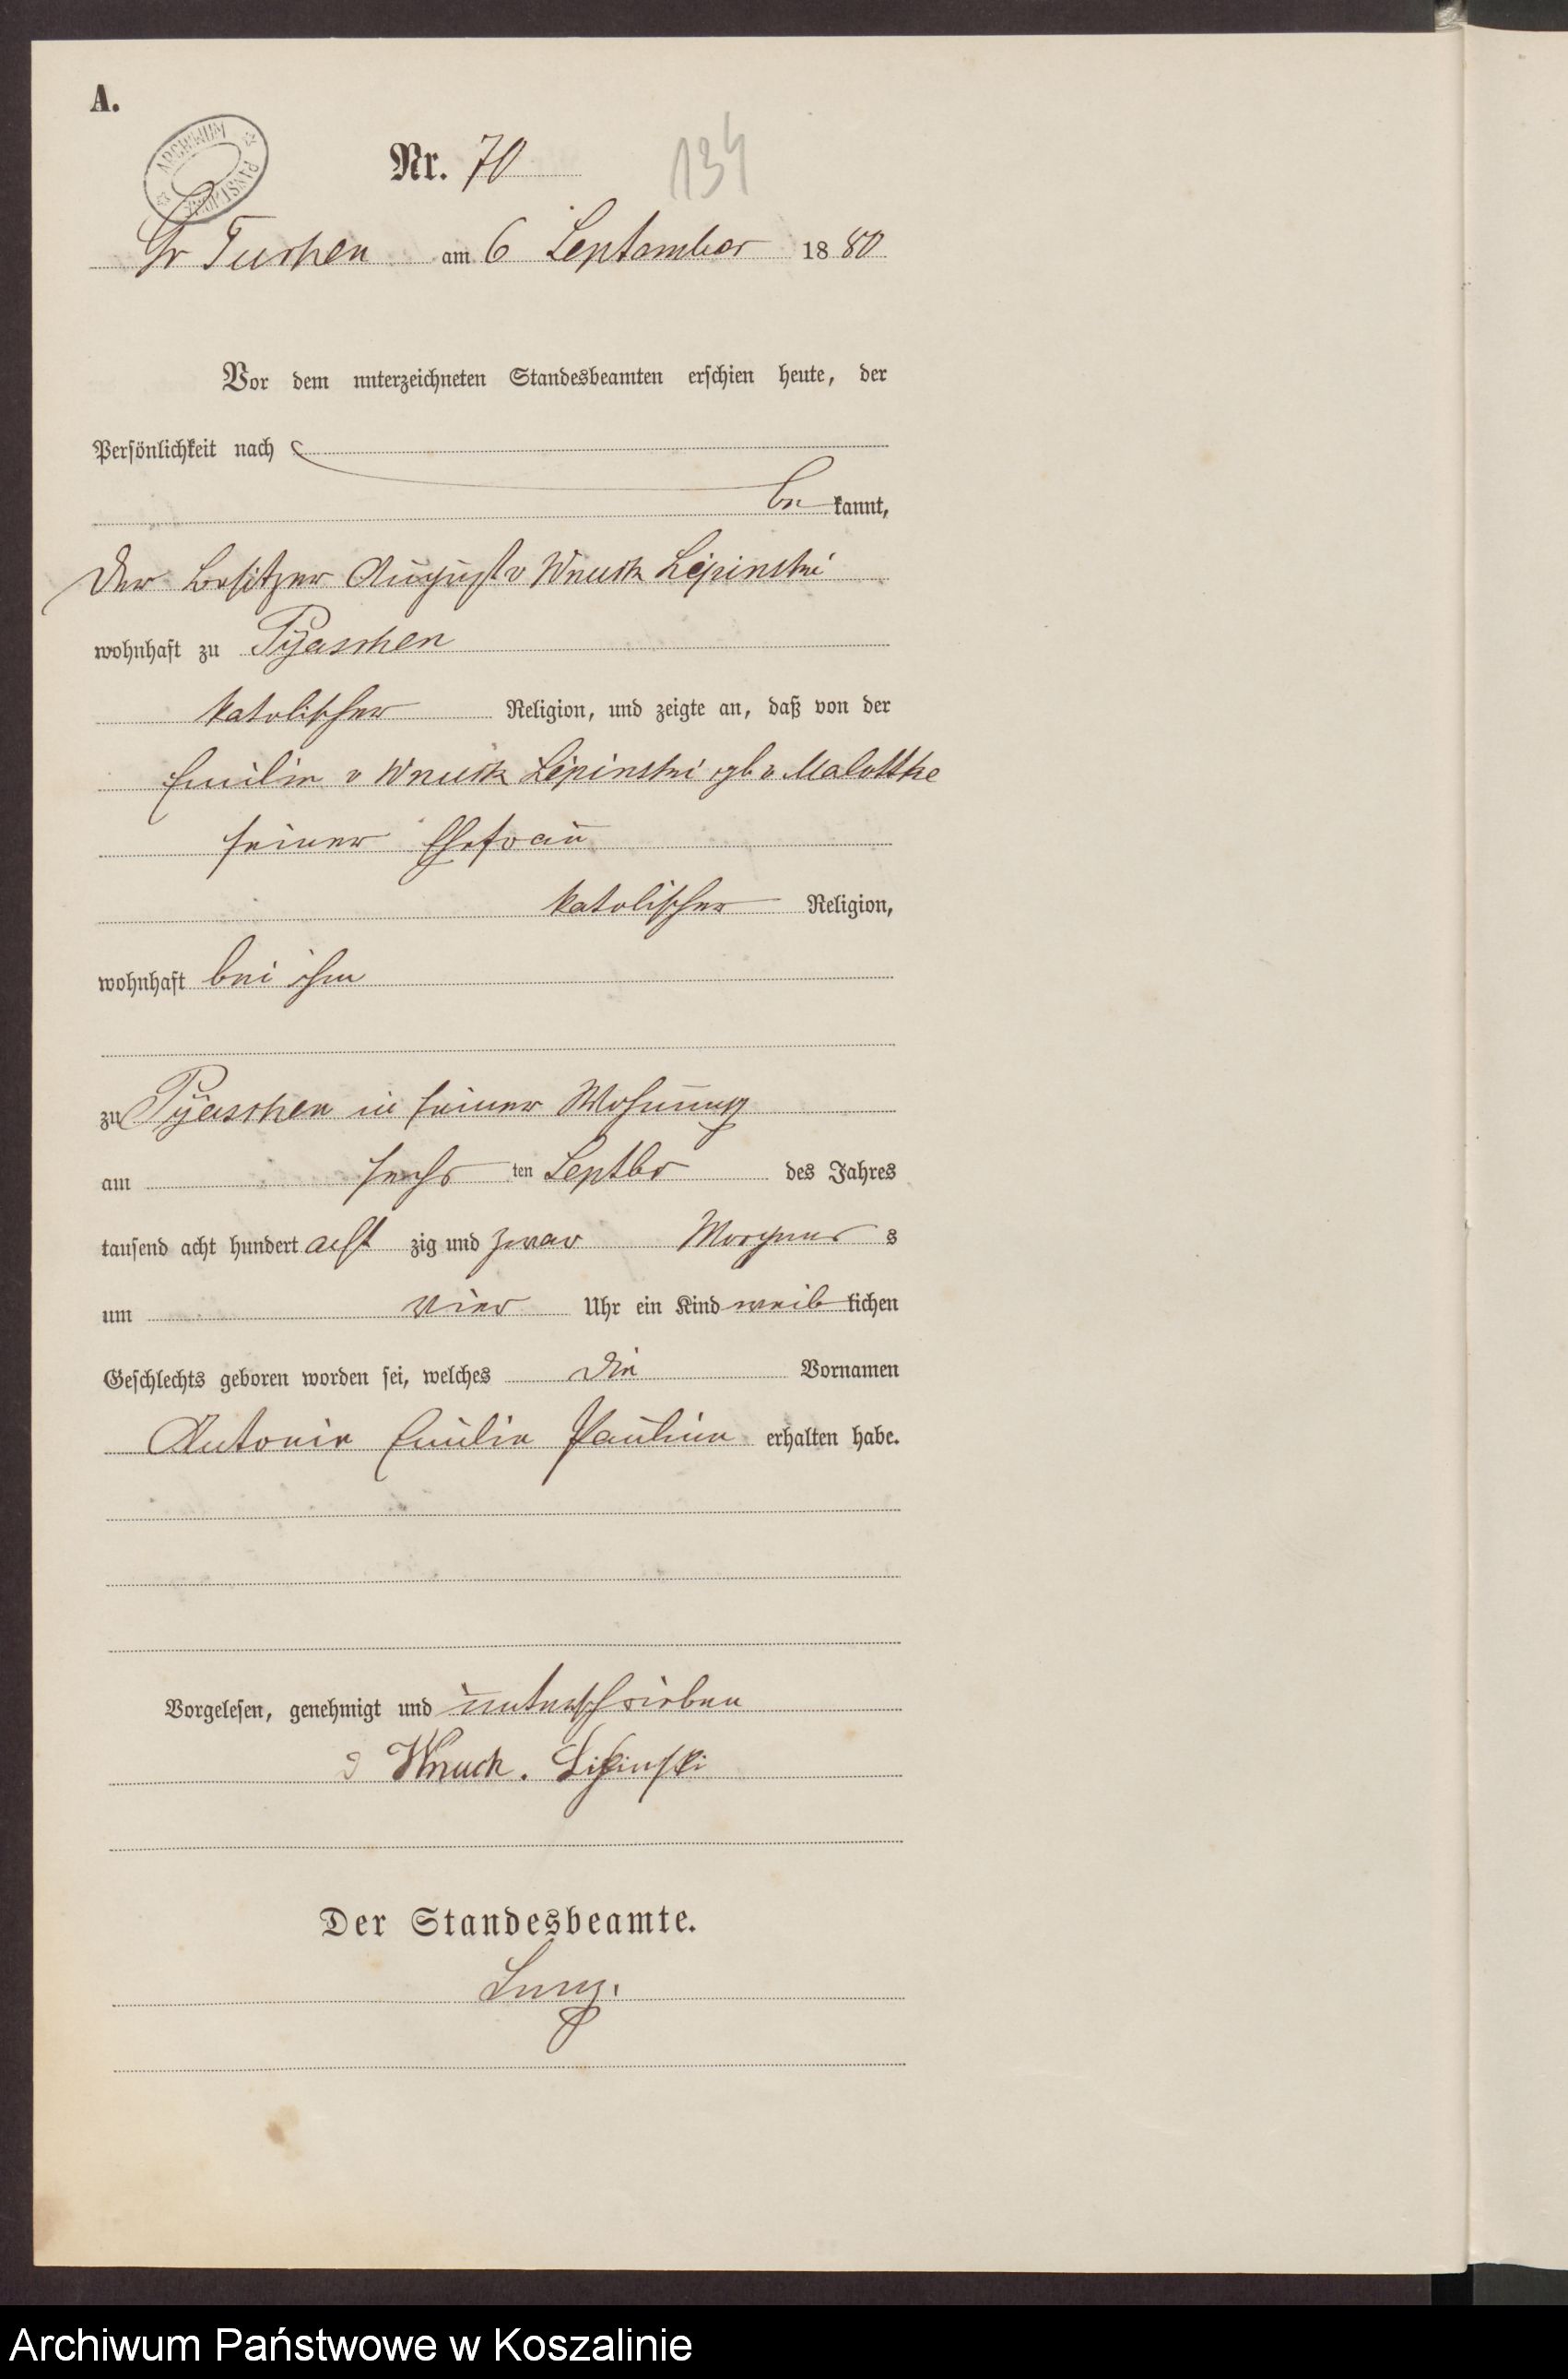 A.
ARCHIWUM PAŃSTWOWE
Nr. 70
134
Gr Tuchen am 6 September 1880
Vor dem unterzeichneten Standesbeamten erschien heute, der
Persönlichkeit nach
be kannt,
der Besitzer August v Wnuck Lipinski
wohnhaft zu Pyaschen
katolischer Religion, und zeigte an, daß von der
Emilie v Wnuck Lipinski gb v Malottke
seiner Ehefrau
katolischer Religion,
wohnhaft bei ihm
zu Pyaschen in seiner Wohnung
am sechs ten Septbr des Jahres
tausend acht hundert acht zig und zwar Morgens s
um vier Uhr ein Kind weib lichen
Geschlechts geboren worden sei, welches die Vornamen
Antonie Emilie Pauline erhalten habe.
Vorgelesen, genehmigt und unterschrieben
v Wnuck. Lipinski
Der Standesbeamte.
Archiwum Państwowe w Koszalinie